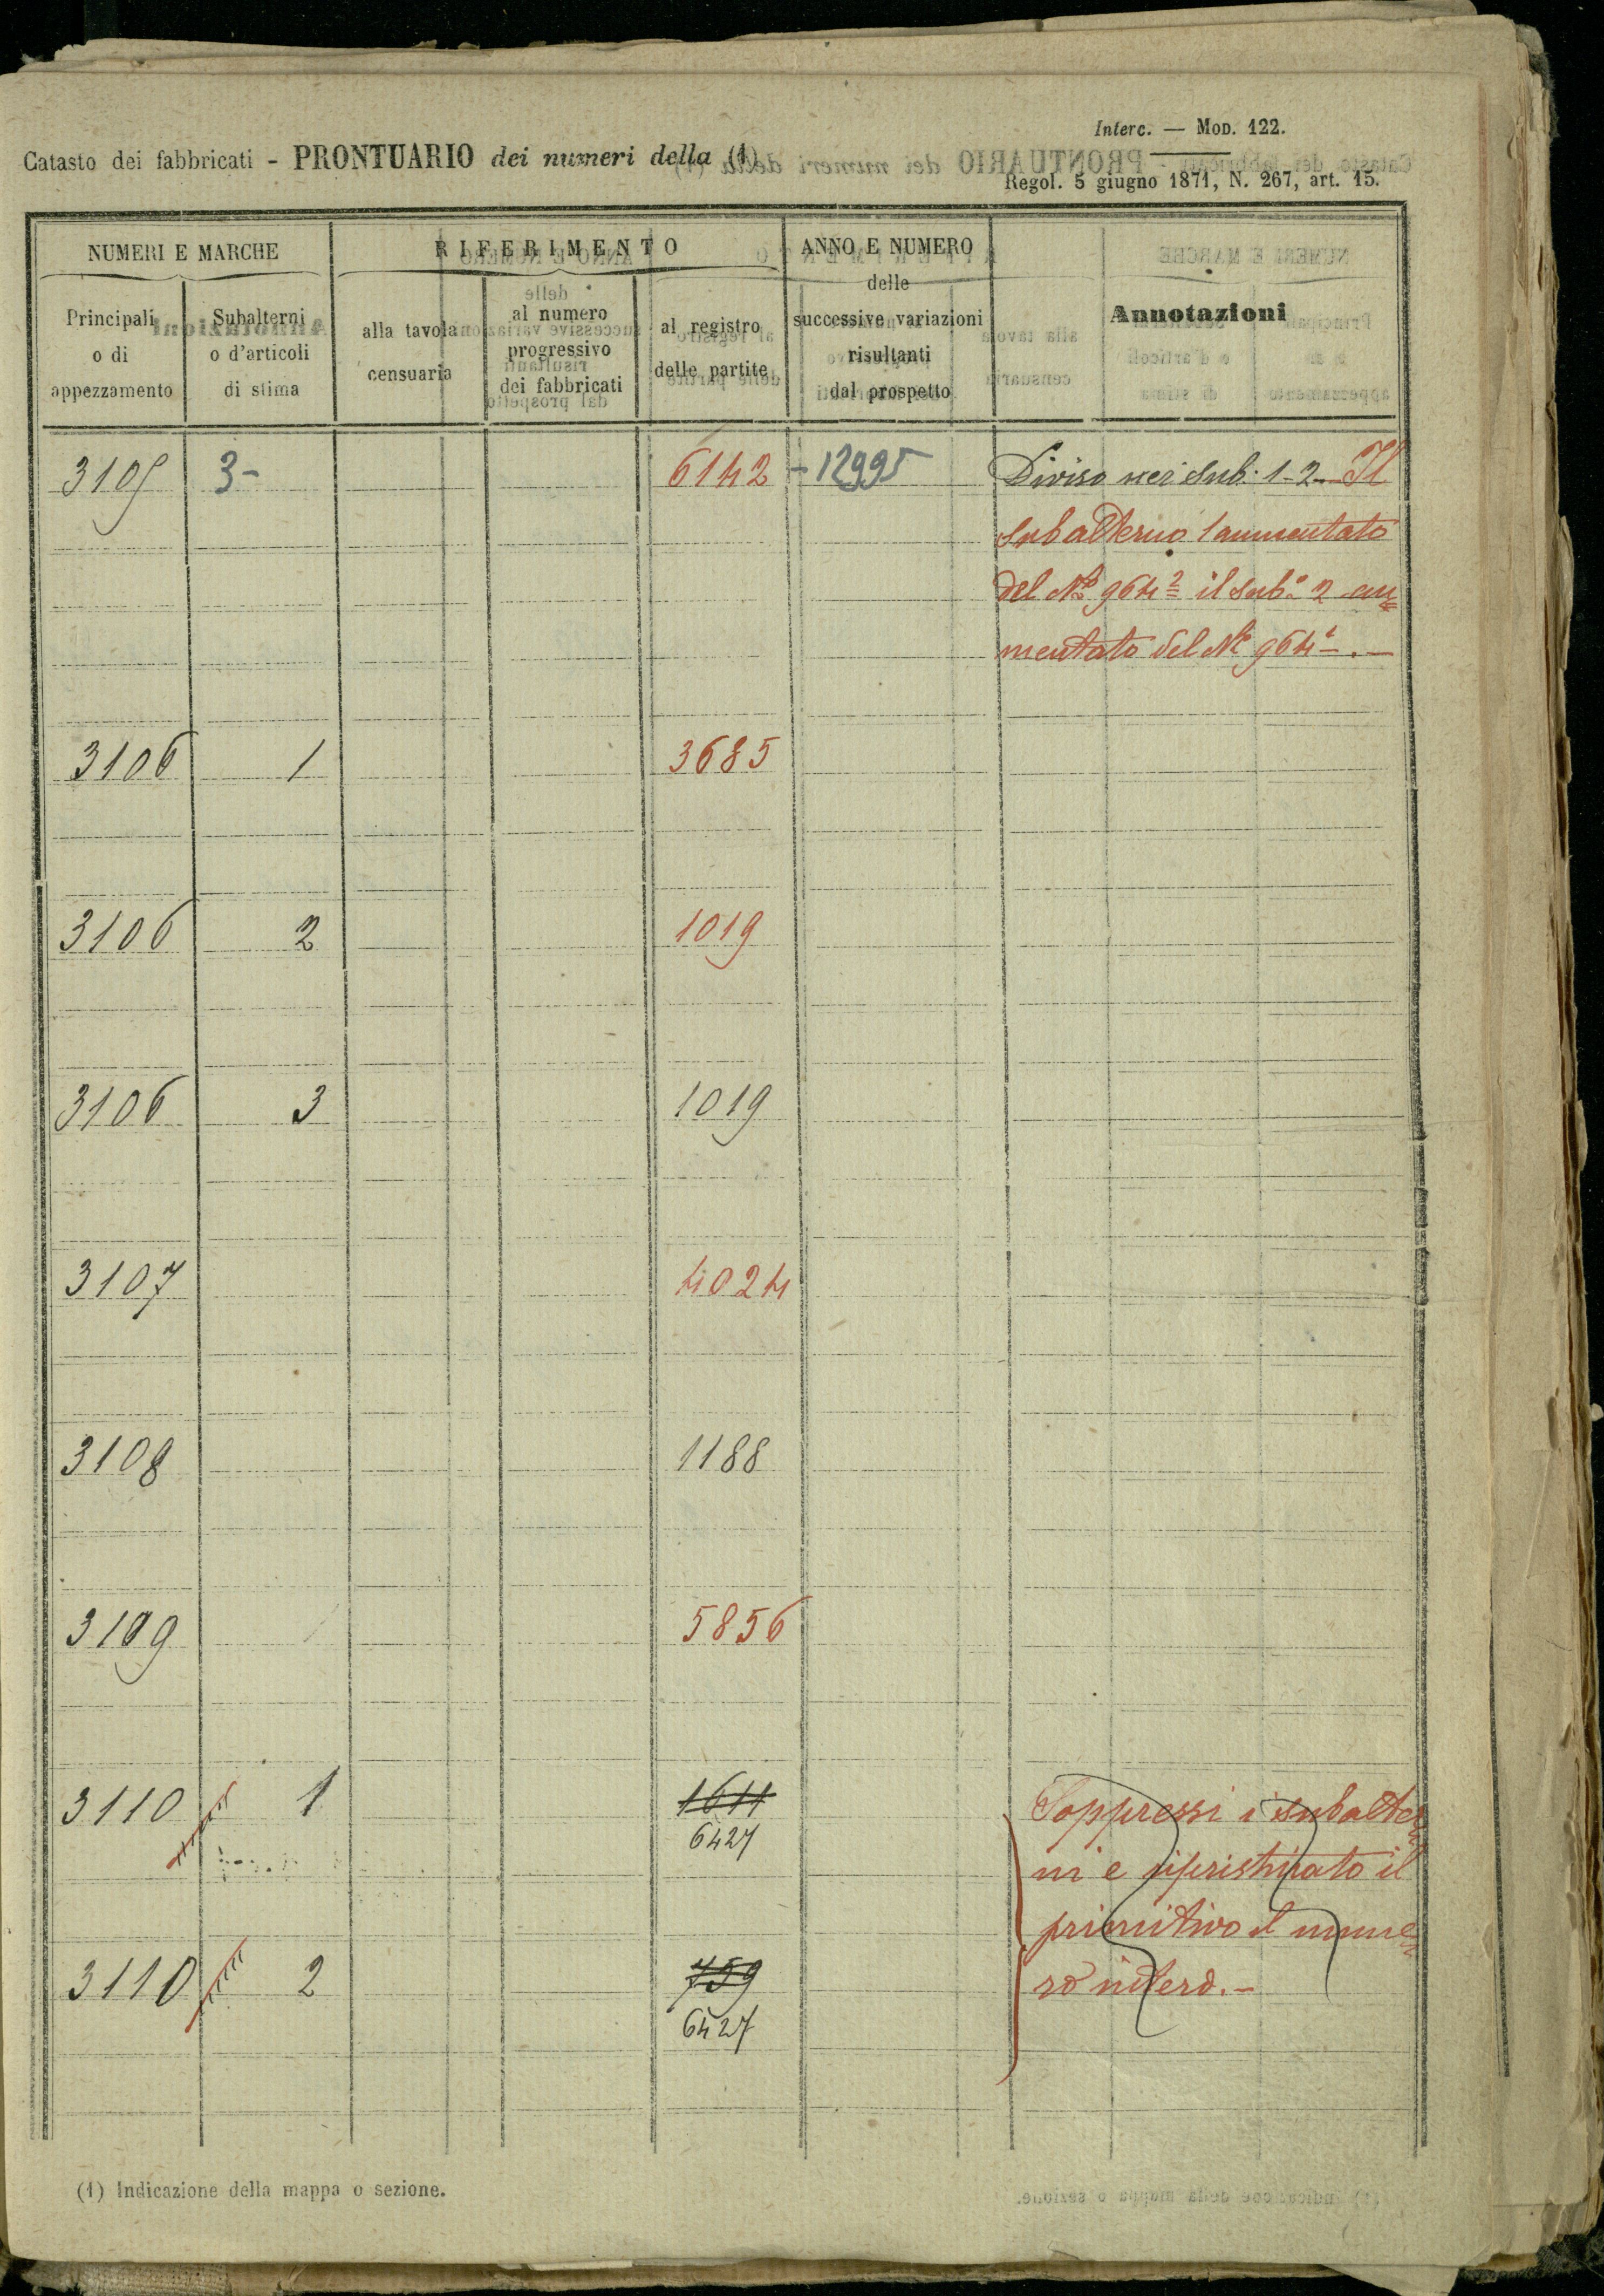 Interc. — Mod. 122.
Catasto dei fabbricati - PRONTUARIO dei numeri della (1)
Regol. 5 giugno 1871, N. 267, art. 15.
NUMERI E MARCHE
RIFERIMENTO
ANNO E NUMERO
delle
successive variazioni
risultanti
dal prospetto
Annotazioni
Principali
o di
appezzamento
Subalterni
o d'articoli
di stima
alla tavola
censuaria
al numero
progressivo
dei fabbricati
al registro
delle partite
3105 3- 6142 - 12995 Diviso nei sub. 1-2- Il
subalterno 1 aumentato
del No 964² il sub.o 2 au=
mentato del No 964¹ - . -
3106 1 3685
3106 2 1019
3106 3 1019
3107 4024
3108 1188
3109 5856
3110 1 1611 Soppressi i subalter
6427
ni e ripristinato il
primitivo il nume
3110 2 759
ro intero. -
6427
(1) Indicazione della mappa o sezione.